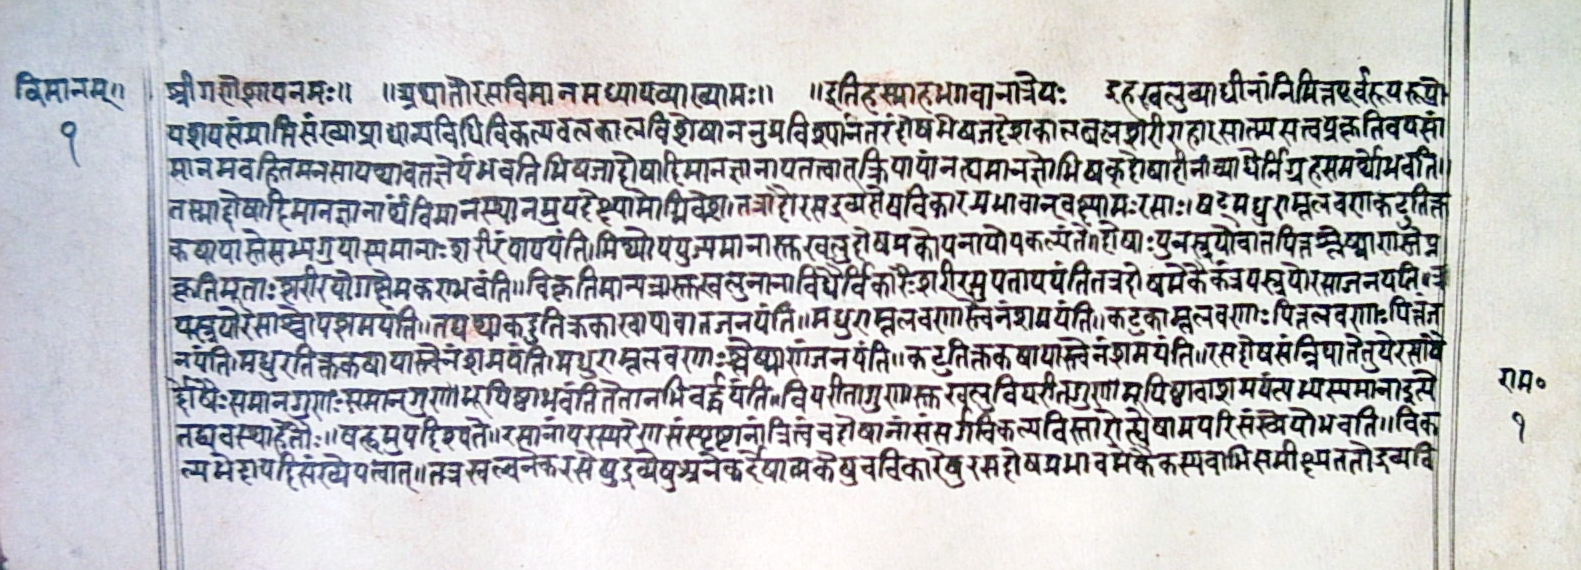 विमानम्॥
१
श्रीगणेशायनमः॥ ॥अथातोरसविमानमध्यायंव्याख्यामः॥ ॥इतिहस्माहभगवानात्रेयः इहखलुव्याधीनांनिमित्तपूर्वरूपरूपो
पशयसंप्राप्तिसंख्याप्राधान्यविधिविकल्पबलकालविशेषाननुप्रविश्यानंतरंदोषभेषजदेशकालबलशरीराहारसात्म्यसत्त्वप्रकृतिवयसां
मानमवहितमनसायथावतज्ञेयंभवतिभिषजादोषादिमानज्ञानायतत्वात्क्रियायांनत्यमानज्ञोभिषक्दोषादीनांव्याधेर्निग्रहसमर्थोभवति॥
तस्माद्दोषादिमानज्ञानार्थंविमानस्थानमुपदेक्ष्यामोग्निवेश।तत्रादौरसद्रव्यदोषविकारप्रभावान्वक्ष्यामःरसाः।षट्मधुराम्ललवणकटुतिक्त
कषायास्तेसम्यगुपास्यमानाःशरीरंयापयंति।मिथ्योपयुज्यमानास्तखलुदोषप्रकोपनायोपकल्पंते॥दोषाःपुनस्त्रयोवातपित्तश्लेष्माणस्तेप्र
कृतिभूताःशरीरयोगक्षेमकराभवंति॥विकृतिमापन्नास्तखलुनानाविधैर्विकारैःशरीरमुपतापयंतितत्रदोषमेकैकंत्रयस्त्रयोरसाजनयंति॥त्र
यस्त्रयोरसाश्चोपशमयंति॥तद्यथाकटुतिक्तकाखायावातजनयंति॥मधुराम्ललवणास्त्वेनंशमयंति॥कटुकाम्ललवणाःपित्तलवणाःपित्तंज
नयंति।मधुरतिक्तकषायास्त्वेनंशमयंति।मधुराम्ललवणाःश्लेष्माणंजनयंति॥कटुतिक्तकषायास्त्वेनंशमयंति॥रसदोषसंन्निपातेतुयेरसायै
र्द्दोषैःसमानगुणाःसमानगुणभूयिष्ठाभवंतितेतानभिवर्द्धयंति॥विपरीतागुणास्तखलुविपरीतगुणभूयिष्ठावाशमयंत्यभ्यस्यमानाइत्ये
तद्यवस्थाहेतोः॥षत्कमुपदिश्यते॥रसानांपरस्परेणसंसृष्टानांत्रित्वंचदोषानांसंसर्गविकल्पविस्तारोत्द्येषामपरिसंस्थेयोभवति॥विक
ल्पभेदापदिसंख्येयत्वात्॥तत्रखल्वनेकरसेषुद्रव्येषुश्चनेकदोषात्मकेषुवविकारेषुरसदोषप्रभावमेकैकस्यवाभिसमीक्ष्यततोद्रव्यवि
राम॰
१